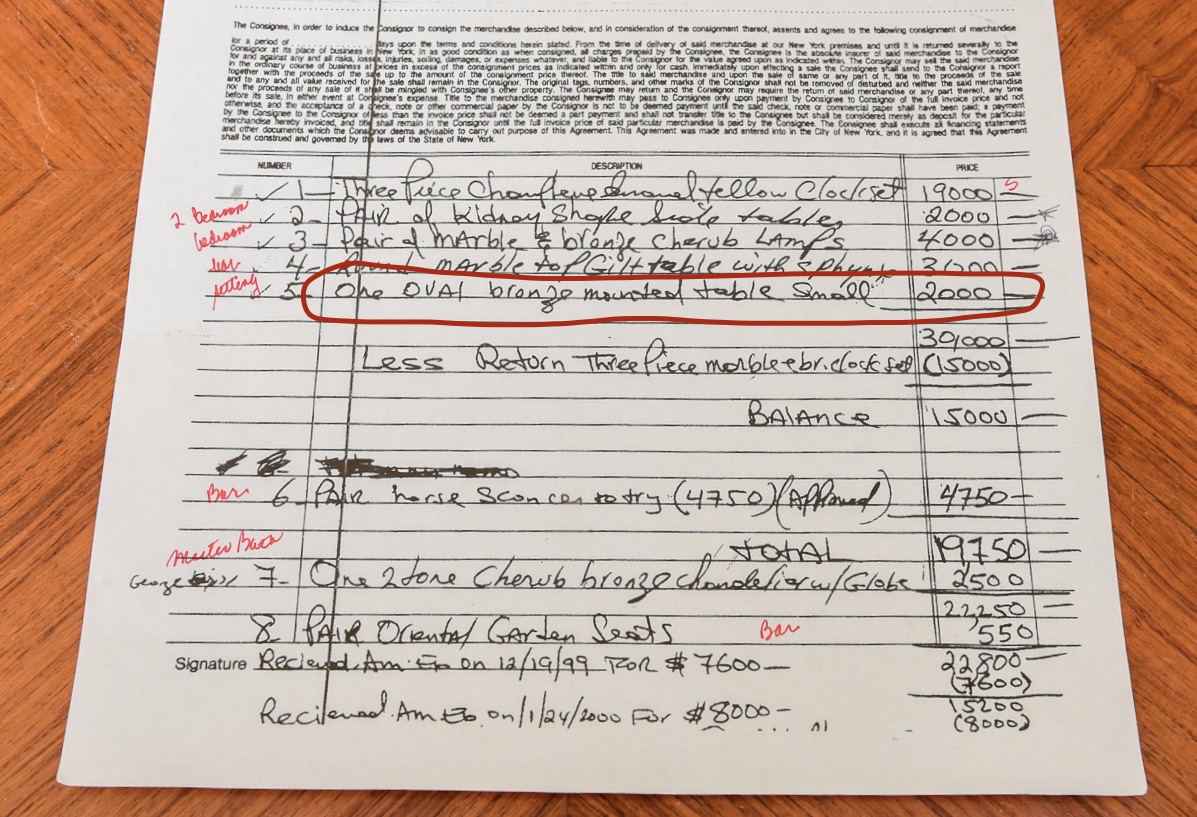 The Consignee, in order to induce the Consignor to consign the merchandise described below, and in consideration of the consignment thereof, assents and agrees to the following consignment of merchandise
for a period of ................ days upon the terms and conditions herein stated. From the time of delivery of said merchandise at our New York premises and until it is returned severally to the
Consignor at its place of business in New York, in as good condition as when consigned, all charges prepaid by the Consignee, the Consignee is the absolute insurer of said merchandise to the Consignor
for and against any and all risks, losses, injuries, soiling, damages, or expenses whatever, and liable to the Consignor for the value agreed upon as indicated within. The Consignor may sell the said merchandise
in the ordinary course of business at prices in excess of the consignment prices as indicated within and only for cash. Immediately upon effecting a sale the Consignee shall send to the Consignor a report
together with the proceeds of the sale up to the amount of the consignment price thereof. The title to said merchandise and upon the sale of same or any part of it, title to the proceeds of the sale
and to any and all value received for the sale shall remain in the Consignor. The original tags, numbers, and other marks of the Consignor shall not be removed of disturbed and neither the said merchandise
nor the proceeds of any sale of it shall be mingled with Consignee's other property. The Consignee may return and the Consignor may require the return of said merchandise or any part thereof, any time
before its sale, in either event at Consignee's expense. Title to the merchandise consigned herewith may pass to Consignee only upon payment by Consignee to Consignor of the full invoice price and not
otherwise, and the acceptance of a check, note or other commercial paper by the Consignor is not to be deemed payment until the said check, note or commercial paper shall have been paid; a payment
by the Consignee to the Consignor of less than the invoice price shall not be deemed a part payment and shall not transfer title to the Consignee but shall be considered merely as deposit for the particular
merchandise hereby invoiced, and title shall remain in the Consignor until the full invoice price of said particular merchandise is paid by the Consignee. The Consignee shall execute all financing statements
and other documents which the Consignor deems advisable to carry out purpose of this Agreement. This Agreement was made and entered into in the City of New York, and it is agreed that this Agreement
shall be construed and governed by the laws of the State of New York.
NUMBER DESCRIPTION PRICE
✓ 1 — Three Piece Enamel Yellow Clock set 19000 —
2 bedroom ✓ 2 - PAIR of Kidney Shape Side tables 2000 —
bedroom ✓ 3 - Pair of MArble & bronze Cherub LAmps 4000 —
4 - Round MArble top Gilt table with 3000 —
✓ 5 - One OVAl bronze mounted table Small 2000 —
30,000 —
Less Return Three Piece marble & br. clock set (15000)
BAlAnce 15000 —
Bar 6 PAIR horse Sconces to try (4750) (Approved) 4750 —
TOTAL 19750 —
Master Bath
George 7 - One 2 tone Cherub bronze chandelier w/ Globe 2500
22,250 —
8 PAIR Oriental Garden Seats Bar 550
Signature Recieved Am Ex on 12/19/99 FOR $ 7600 — 22,800 —
(7600)
15200
Recieved Am Ex on 1/24/2000 For $ 8000 — (8000)